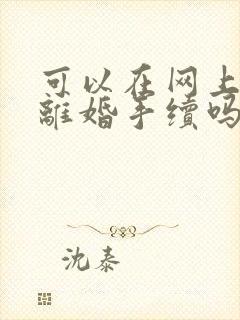 可以在网上
離婚手續吗
沈泰